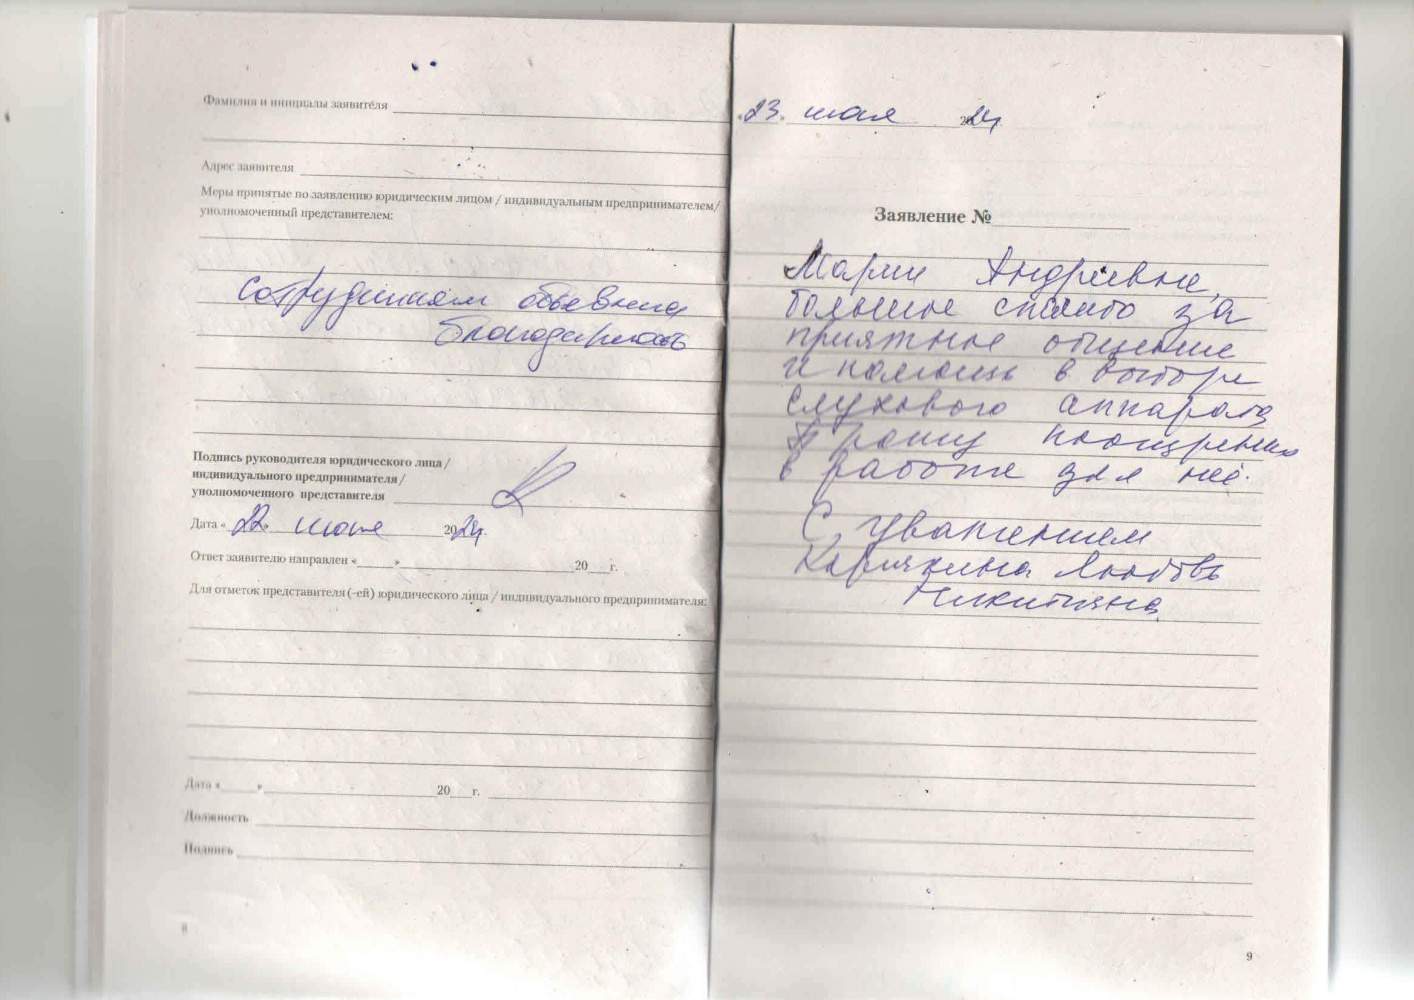 Фамилия и инициалы заявителя
Адрес заявителя
Меры принятые по заявлению юридическим лицом / индивидуальным предпринимателем/
уполномоченный представителем:
сотрудникам объявлена
благодарность
Подпись руководителя юридического лица /
индивидуального предпринимателя /
уполномоченного представителя
Дата « 22 » июля 2024.
Ответ заявителю направлен « » 20 г.
Для отметок представителя (-ей) юридического лица / индивидуального предпринимателя:
Дата « » 20 г.
Должность
Подпись
8
«23. июля 2024
Заявление №
Марии Андреевне,
большое спасибо за
приятное общение
и помощь в выборе
слухового аппарата
Прошу поощрению
в работе для неё.
С уважением
Карякина Любовь
Никитична
9